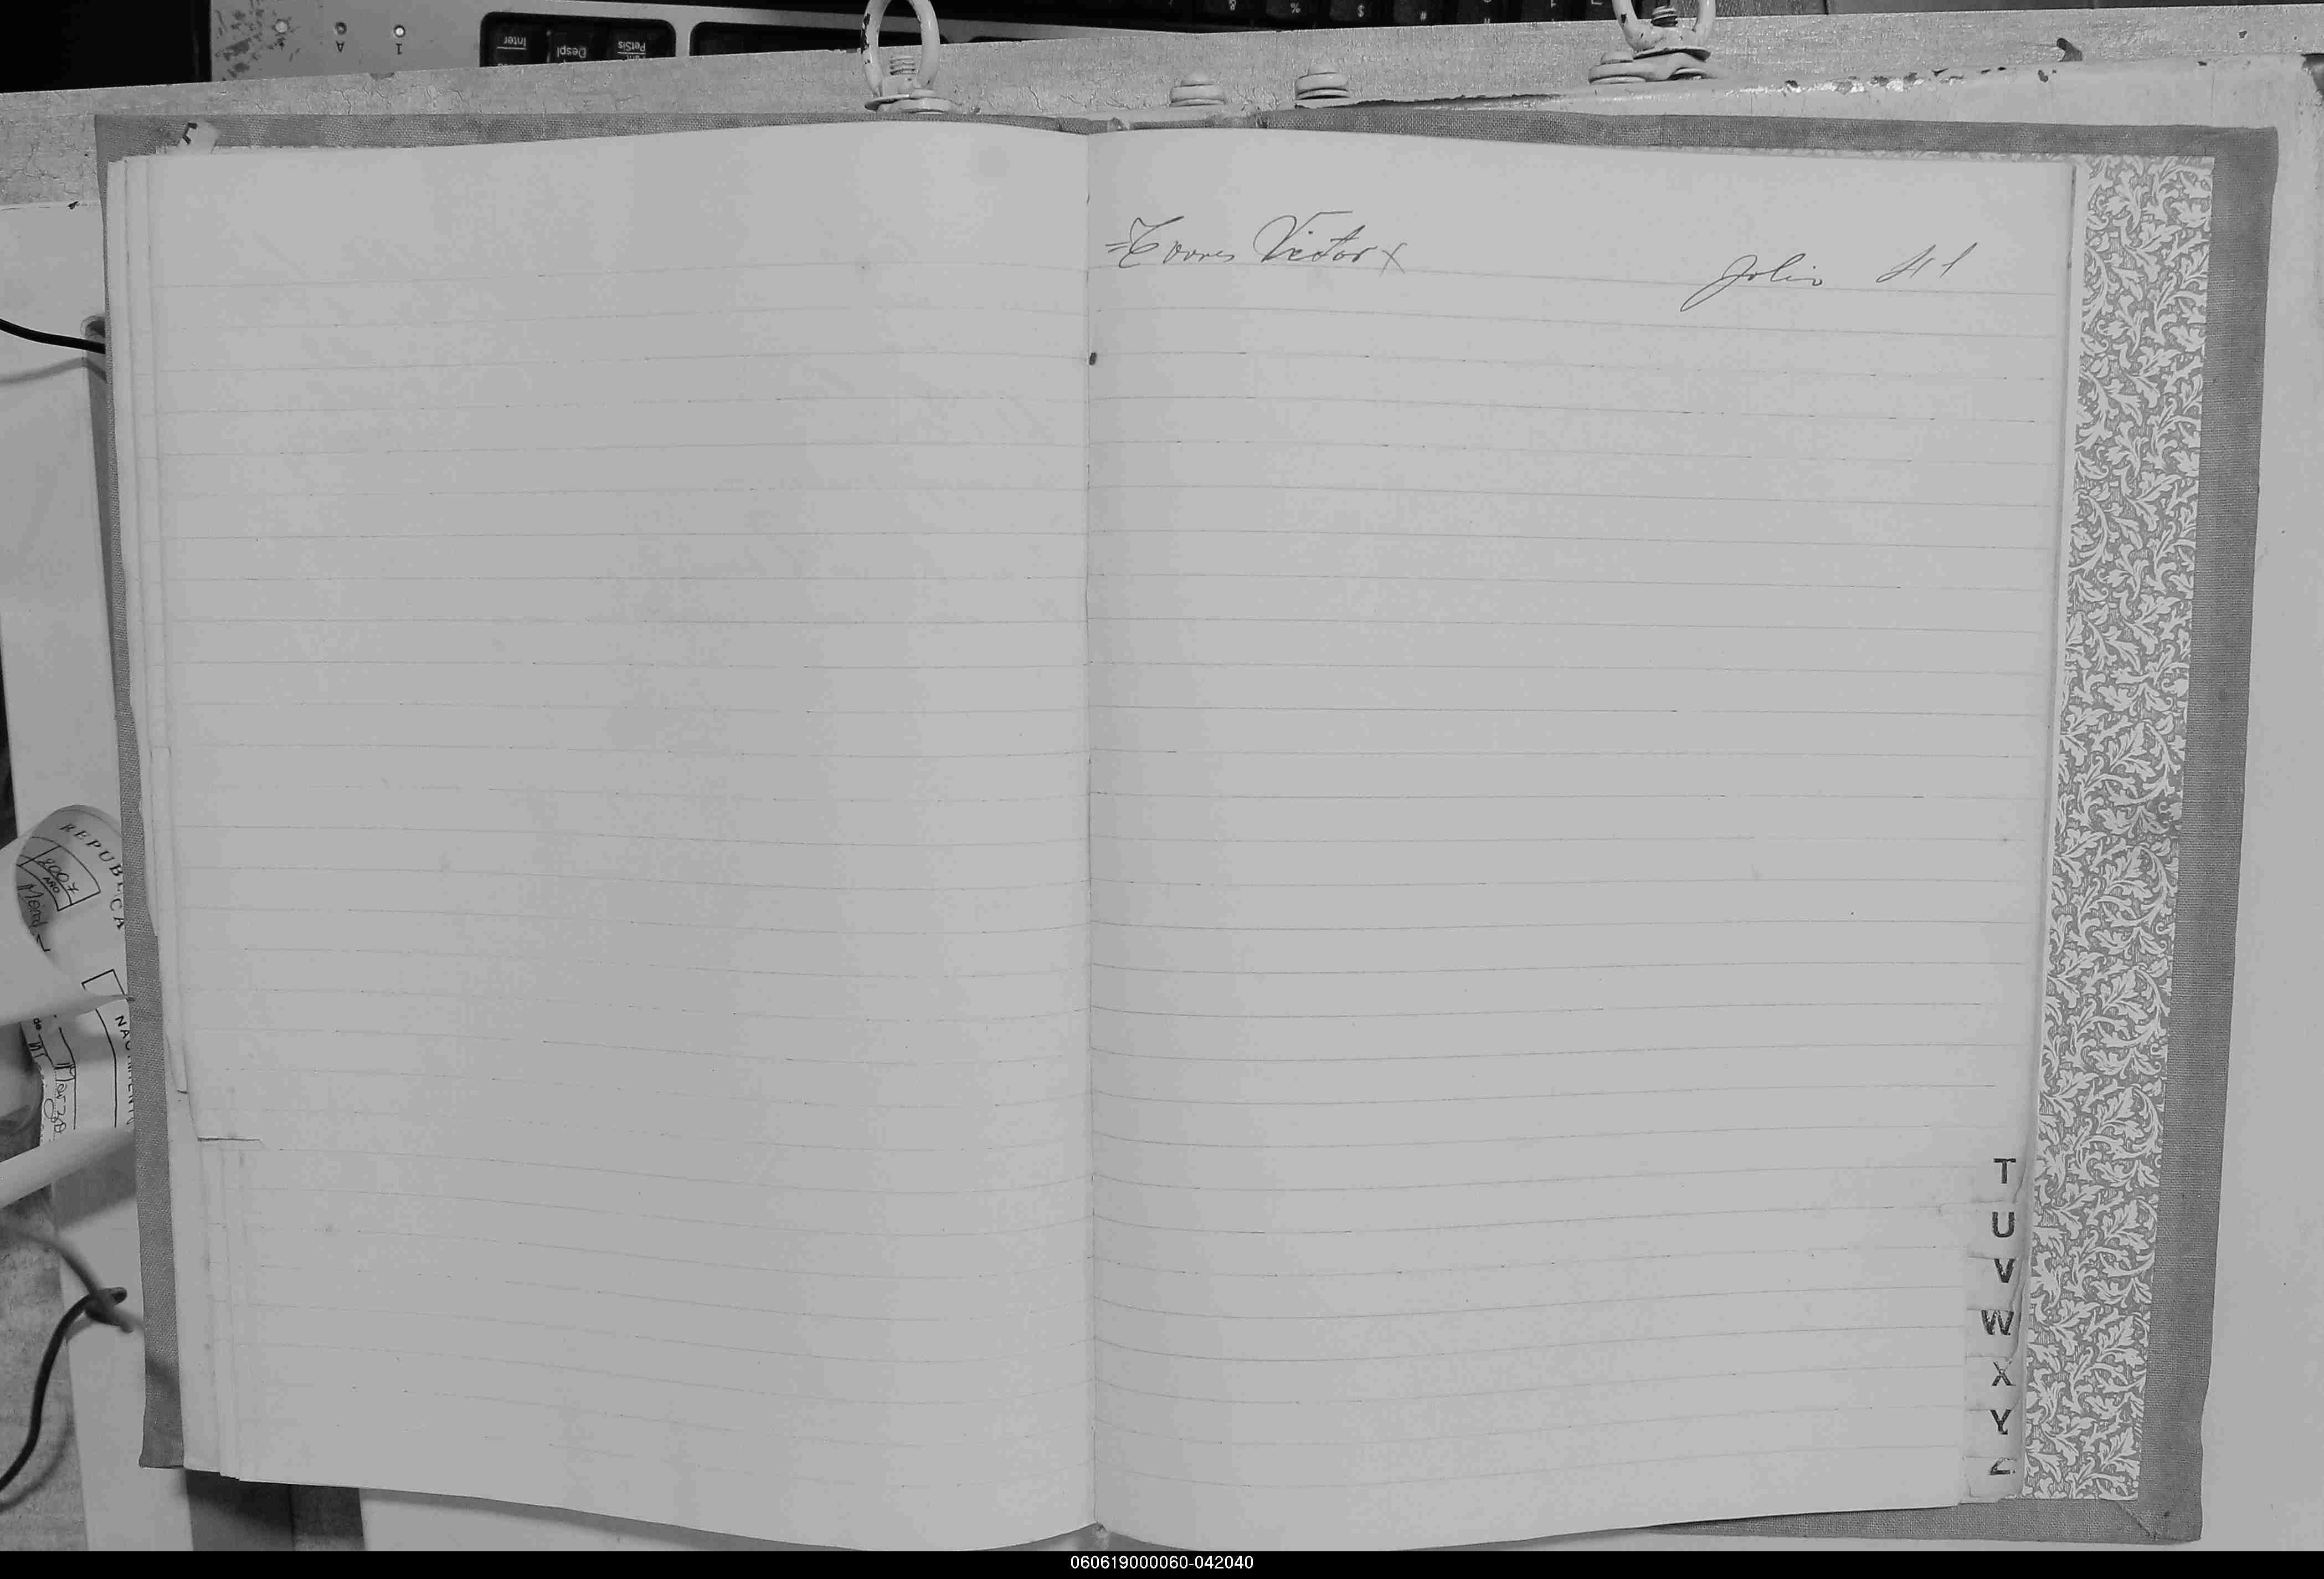 =Torres Victor x
Folio 41
T
U
V
W
X
Y
Z
REPUBLICA
2007
AÑO
Inter
Despl
PetSis
1
A
060619000060-042040